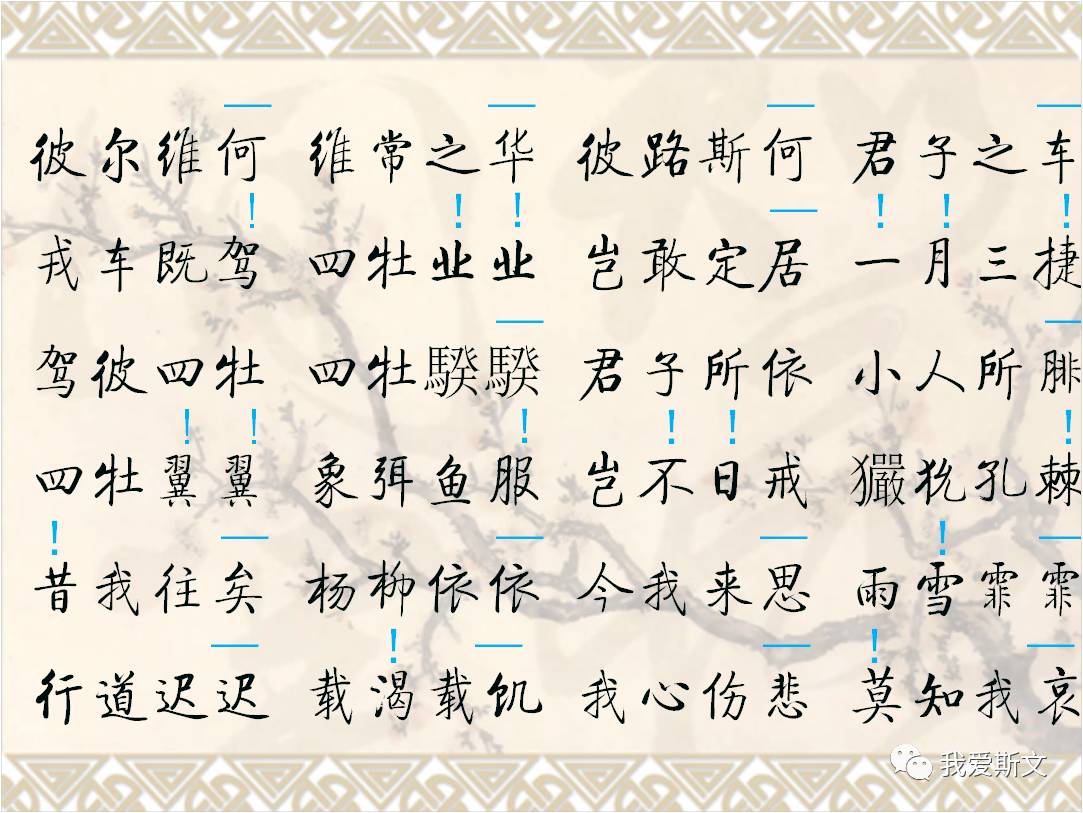 彼尔维何 维常之华 彼路斯何 君子之车
戎车既驾 四牡业业 岂敢定居 一月三捷
驾彼四牡 四牡騤騤 君子所依 小人所腓
四牡翼翼 象弭鱼服 岂不日戒 玁狁孔棘
昔我往矣 杨柳依依 今我来思 雨雪霏霏
行道迟迟 载渴载饥 我心伤悲 莫知我哀
我爱斯文